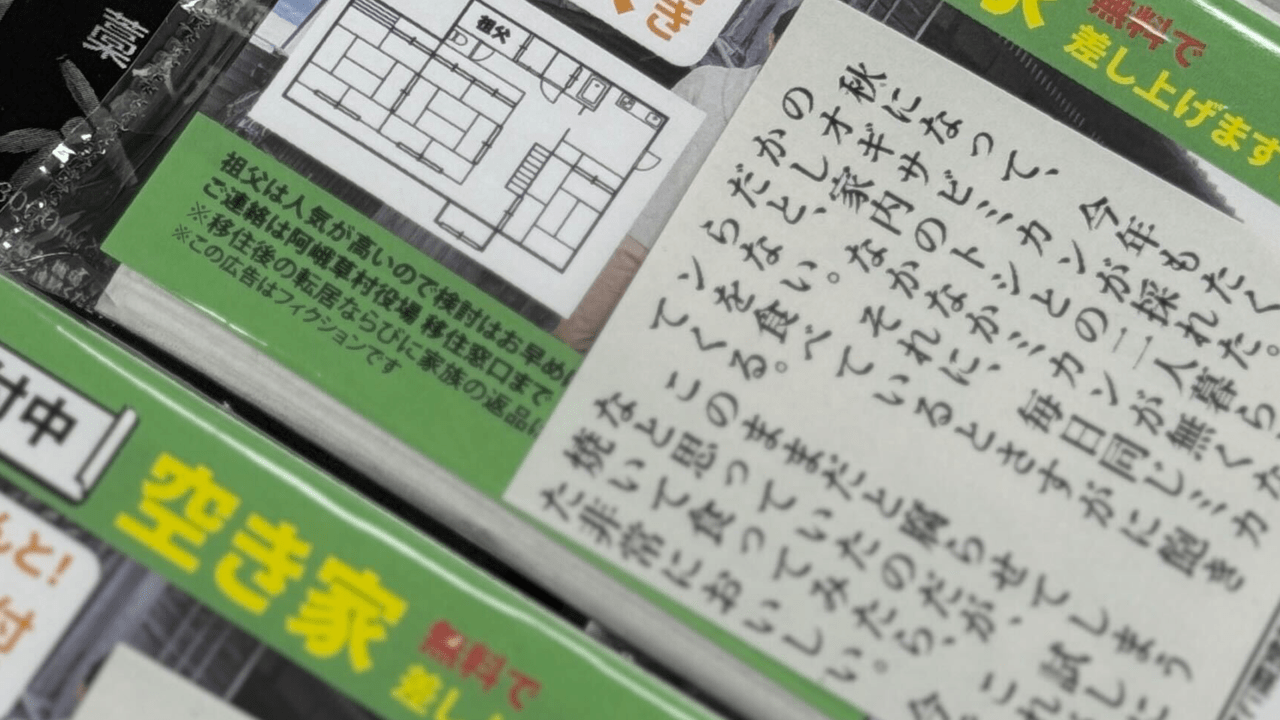 菓
祖父
祖父は人気が高いので検討はお早め
ご連絡は阿峨草村役場 移住窓口まで
※移住後の転居ならびに家族の返品
※この広告はフィクションです
付き
家
無料で
差し上げます
秋になって、今年もたく
のオギサビミカンが採れた。
かし家内のトシとの二人暮ら
だと、なかなかミカンが無くな
らない。それに、毎日同じミカ
ンを食べているとさすがに飽き
てくる。
このままだと腐らせてしまう
なと思っていたのだが、試しに
焼いて食ってみたら、これ
た非常においしい。今
中
空き家
無料で
差し
と!
付